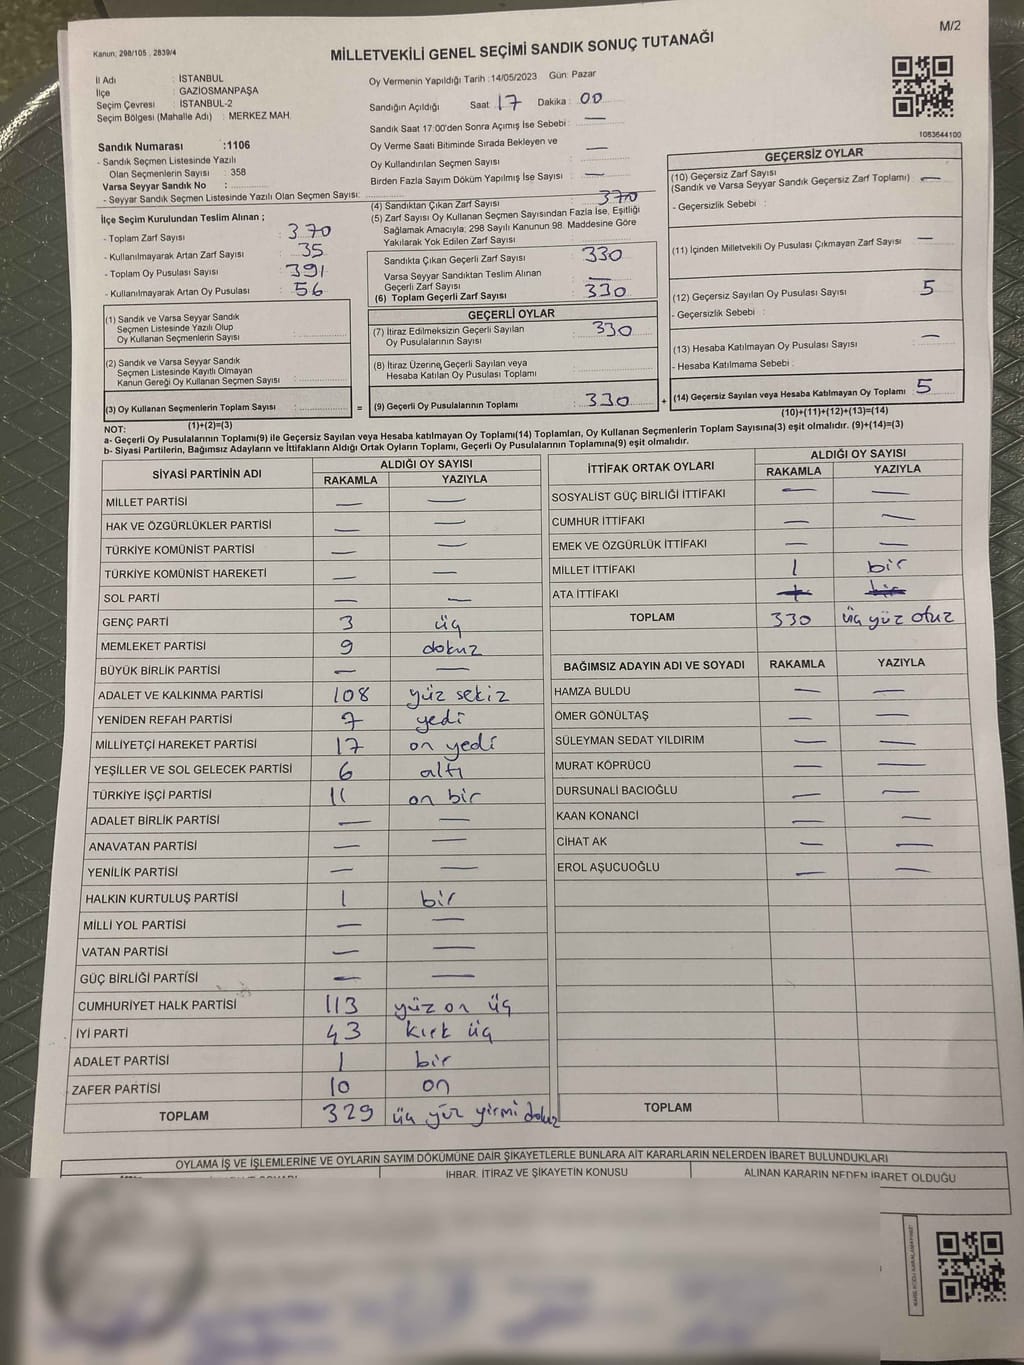 M/2
Kanun: 298/105 , 2839/4
MİLLETVEKİLİ GENEL SEÇİMİ SANDIK SONUÇ TUTANAĞI
İl Adı : İSTANBUL
İlçe : GAZİOSMANPAŞA
Seçim Çevresi : İSTANBUL-2
Seçim Bölgesi (Mahalle Adı) : MERKEZ MAH.
Oy Vermenin Yapıldığı Tarih :14/05/2023 Gün: Pazar
Sandığın Açıldığı Saat 17 Dakika : 00
Sandık Saat 17:00'den Sonra Açımış İse Sebebi : —
Oy Verme Saati Bitiminde Sırada Bekleyen ve
Oy Kullandırılan Seçmen Sayısı —
Birden Fazla Sayım Döküm Yapılmış İse Sayısı —
1083644100
Sandık Numarası :1106
- Sandık Seçmen Listesinde Yazılı
Olan Seçmenlerin Sayısı : 358
Varsa Seyyar Sandık No :
- Seyyar Sandık Seçmen Listesinde Yazılı Olan Seçmen Sayısı:
İlçe Seçim Kurulundan Teslim Alınan ;
- Toplam Zarf Sayısı : 370
- Kullanılmayarak Artan Zarf Sayısı : 35
- Toplam Oy Pusulası Sayısı : 391
- Kullanılmayarak Artan Oy Pusulası : 56
(1) Sandık ve Varsa Seyyar Sandık
Seçmen Listesinde Yazılı Olup
Oy Kullanan Seçmenlerin Sayısı :
(2) Sandık ve Varsa Seyyar Sandık
Seçmen Listesinde Kayıtlı Olmayan
Kanun Gereği Oy Kullanan Seçmen Sayısı :
(3) Oy Kullanan Seçmenlerin Toplam Sayısı : =
(1)+(2)=(3)
(4) Sandıktan Çıkan Zarf Sayısı
(5) Zarf Sayısı Oy Kullanan Seçmen Sayısından Fazla İse, Eşitliği
Sağlamak Amacıyla, 298 Sayılı Kanunun 98. Maddesine Göre
Yakılarak Yok Edilen Zarf Sayısı :
Sandıkta Çıkan Geçerli Zarf Sayısı : 330
Varsa Seyyar Sandıktan Teslim Alınan
Geçerli Zarf Sayısı : —
(6) Toplam Geçerli Zarf Sayısı : 330
GEÇERLİ OYLAR
(7) İtiraz Edilmeksizin Geçerli Sayılan
Oy Pusulalarının Sayısı : 330
(8) İtiraz Üzerine, Geçerli Sayılan veya
Hesaba Katılan Oy Pusulası Toplamı :
(9) Geçerli Oy Pusulalarının Toplamı : 330 +
GEÇERSİZ OYLAR
(10) Geçersiz Zarf Sayısı
(Sandık ve Varsa Seyyar Sandık Geçersiz Zarf Toplamı) : —
- Geçersizlik Sebebi :
(11) İçinden Milletvekili Oy Pusulası Çıkmayan Zarf Sayısı : —
(12) Geçersiz Sayılan Oy Pusulası Sayısı : 5
- Geçersizlik Sebebi :
(13) Hesaba Katılmayan Oy Pusulası Sayısı : —
- Hesaba Katılmama Sebebi :
(14) Geçersiz Sayılan veya Hesaba Katılmayan Oy Toplamı : 5
(10)+(11)+(12)+(13)=(14)
NOT:
a- Geçerli Oy Pusulalarının Toplamı(9) ile Geçersiz Sayılan veya Hesaba katılmayan Oy Toplamı(14) Toplamları, Oy Kullanan Seçmenlerin Toplam Sayısına(3) eşit olmalıdır. (9)+(14)=(3)
b- Siyasi Partilerin, Bağımsız Adayların ve İttifakların Aldığı Ortak Oyların Toplamı, Geçerli Oy Pusulalarının Toplamına(9) eşit olmalıdır.
SİYASİ PARTİNİN ADI ALDIĞI OY SAYISI
RAKAMLA YAZIYLA
MİLLET PARTİSİ — —
HAK VE ÖZGÜRLÜKLER PARTİSİ — —
TÜRKİYE KOMÜNİST PARTİSİ — —
TÜRKİYE KOMÜNİST HAREKETİ — —
SOL PARTİ — —
GENÇ PARTİ 3 üç
MEMLEKET PARTİSİ 9 dokuz
BÜYÜK BİRLİK PARTİSİ — —
ADALET VE KALKINMA PARTİSİ 108 yüz sekiz
YENİDEN REFAH PARTİSİ 7 yedi
MİLLİYETÇİ HAREKET PARTİSİ 17 on yedi
YEŞİLLER VE SOL GELECEK PARTİSİ 6 altı
TÜRKİYE İŞÇİ PARTİSİ 11 on bir
ADALET BİRLİK PARTİSİ — —
ANAVATAN PARTİSİ — —
YENİLİK PARTİSİ — —
HALKIN KURTULUŞ PARTİSİ 1 bir
MİLLİ YOL PARTİSİ — —
VATAN PARTİSİ — —
GÜÇ BİRLİĞİ PARTİSİ — —
CUMHURİYET HALK PARTİSİ 113 yüz on üç
İYİ PARTİ 43 kırk üç
ADALET PARTİSİ 1 bir
ZAFER PARTİSİ 10 on
TOPLAM 329 üç yüz yirmi dokuz
İTTİFAK ORTAK OYLARI ALDIĞI OY SAYISI
RAKAMLA YAZIYLA
SOSYALİST GÜÇ BİRLİĞİ İTTİFAKI — —
CUMHUR İTTİFAKI — —
EMEK VE ÖZGÜRLÜK İTTİFAKI — —
MİLLET İTTİFAKI 1 bir
ATA İTTİFAKI
TOPLAM 330 üç yüz otuz
BAĞIMSIZ ADAYIN ADI VE SOYADI RAKAMLA YAZIYLA
HAMZA BULDU — —
ÖMER GÖNÜLTAŞ — —
SÜLEYMAN SEDAT YILDIRIM — —
MURAT KÖPRÜCÜ — —
DURSUNALİ BACIOĞLU — —
KAAN KONANCİ — —
CİHAT AK — —
EROL AŞUCUOĞLU — —
TOPLAM
OYLAMA İŞ VE İŞLEMLERİNE VE OYLARIN SAYIM DÖKÜMÜNE DAİR ŞİKAYETLERLE BUNLARA AİT KARARLARIN NELERDEN İBARET BULUNDUKLARI
İHBAR, İTİRAZ VE ŞİKAYETİN KONUSU ALINAN KARARIN NEDEN İBARET OLDUĞU